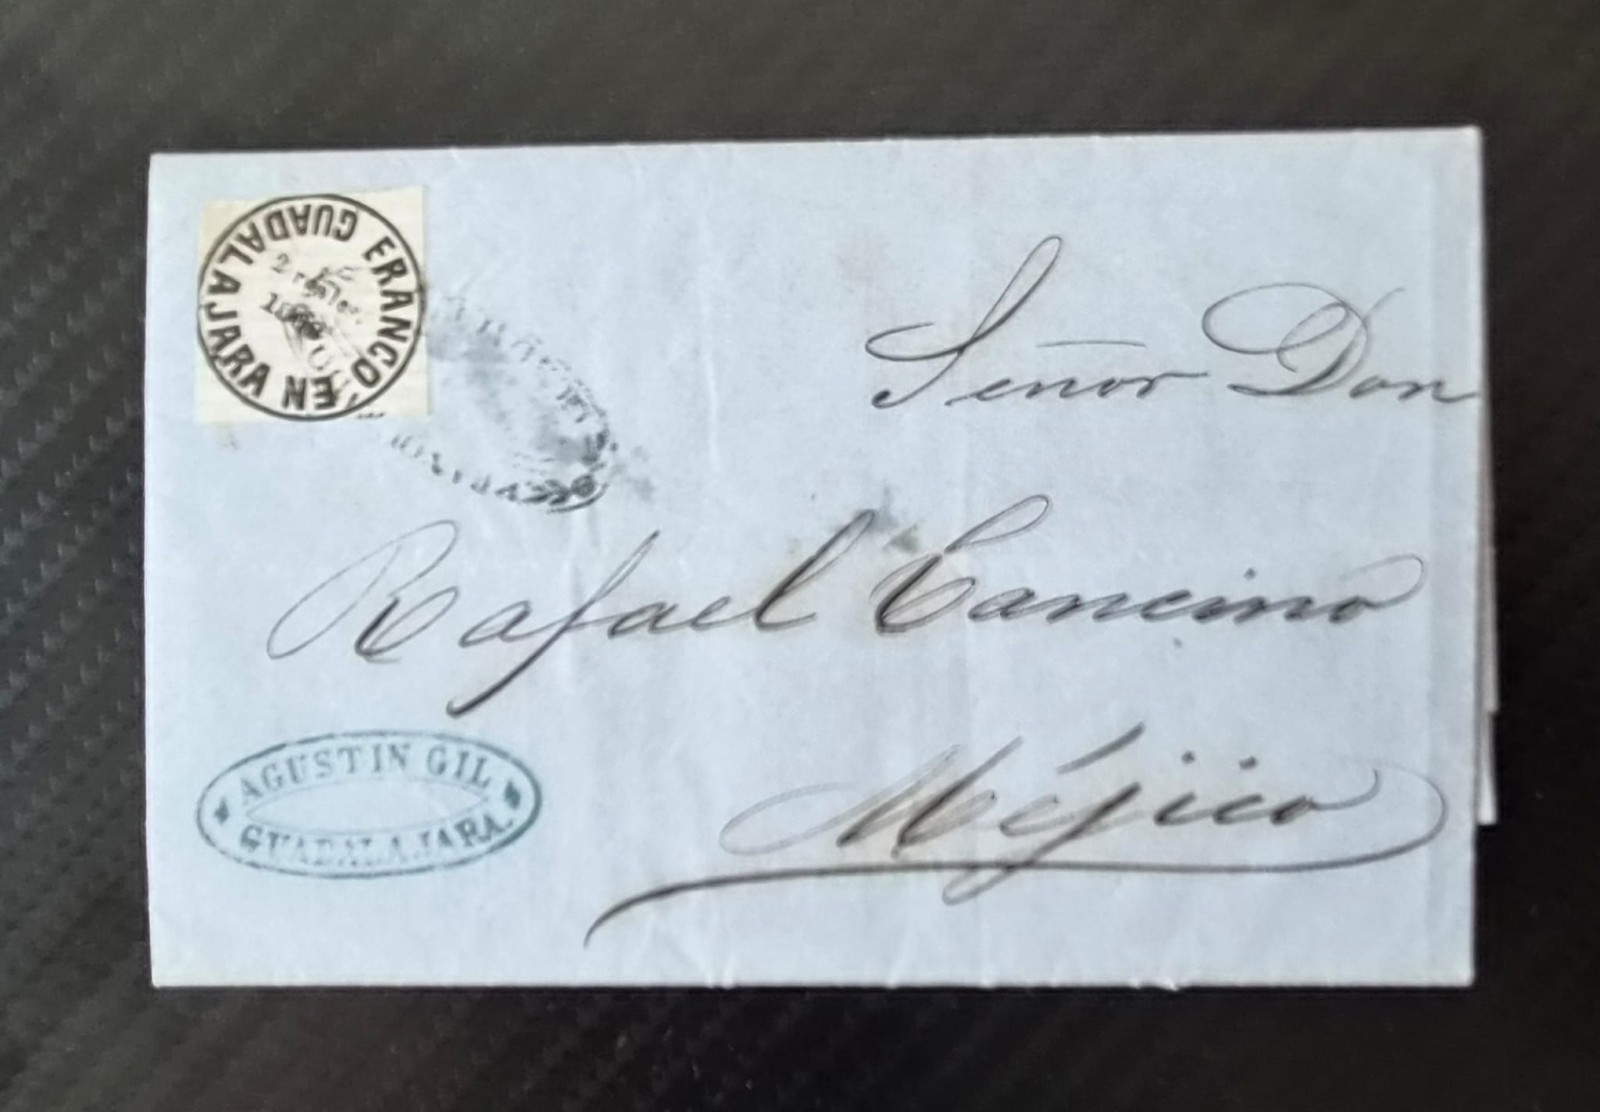 FRANCO EN
GUADALAJARA
2
Señor Don
Rafael Cancino
Méjico
AGUSTIN GIL
GUADALAJARA.